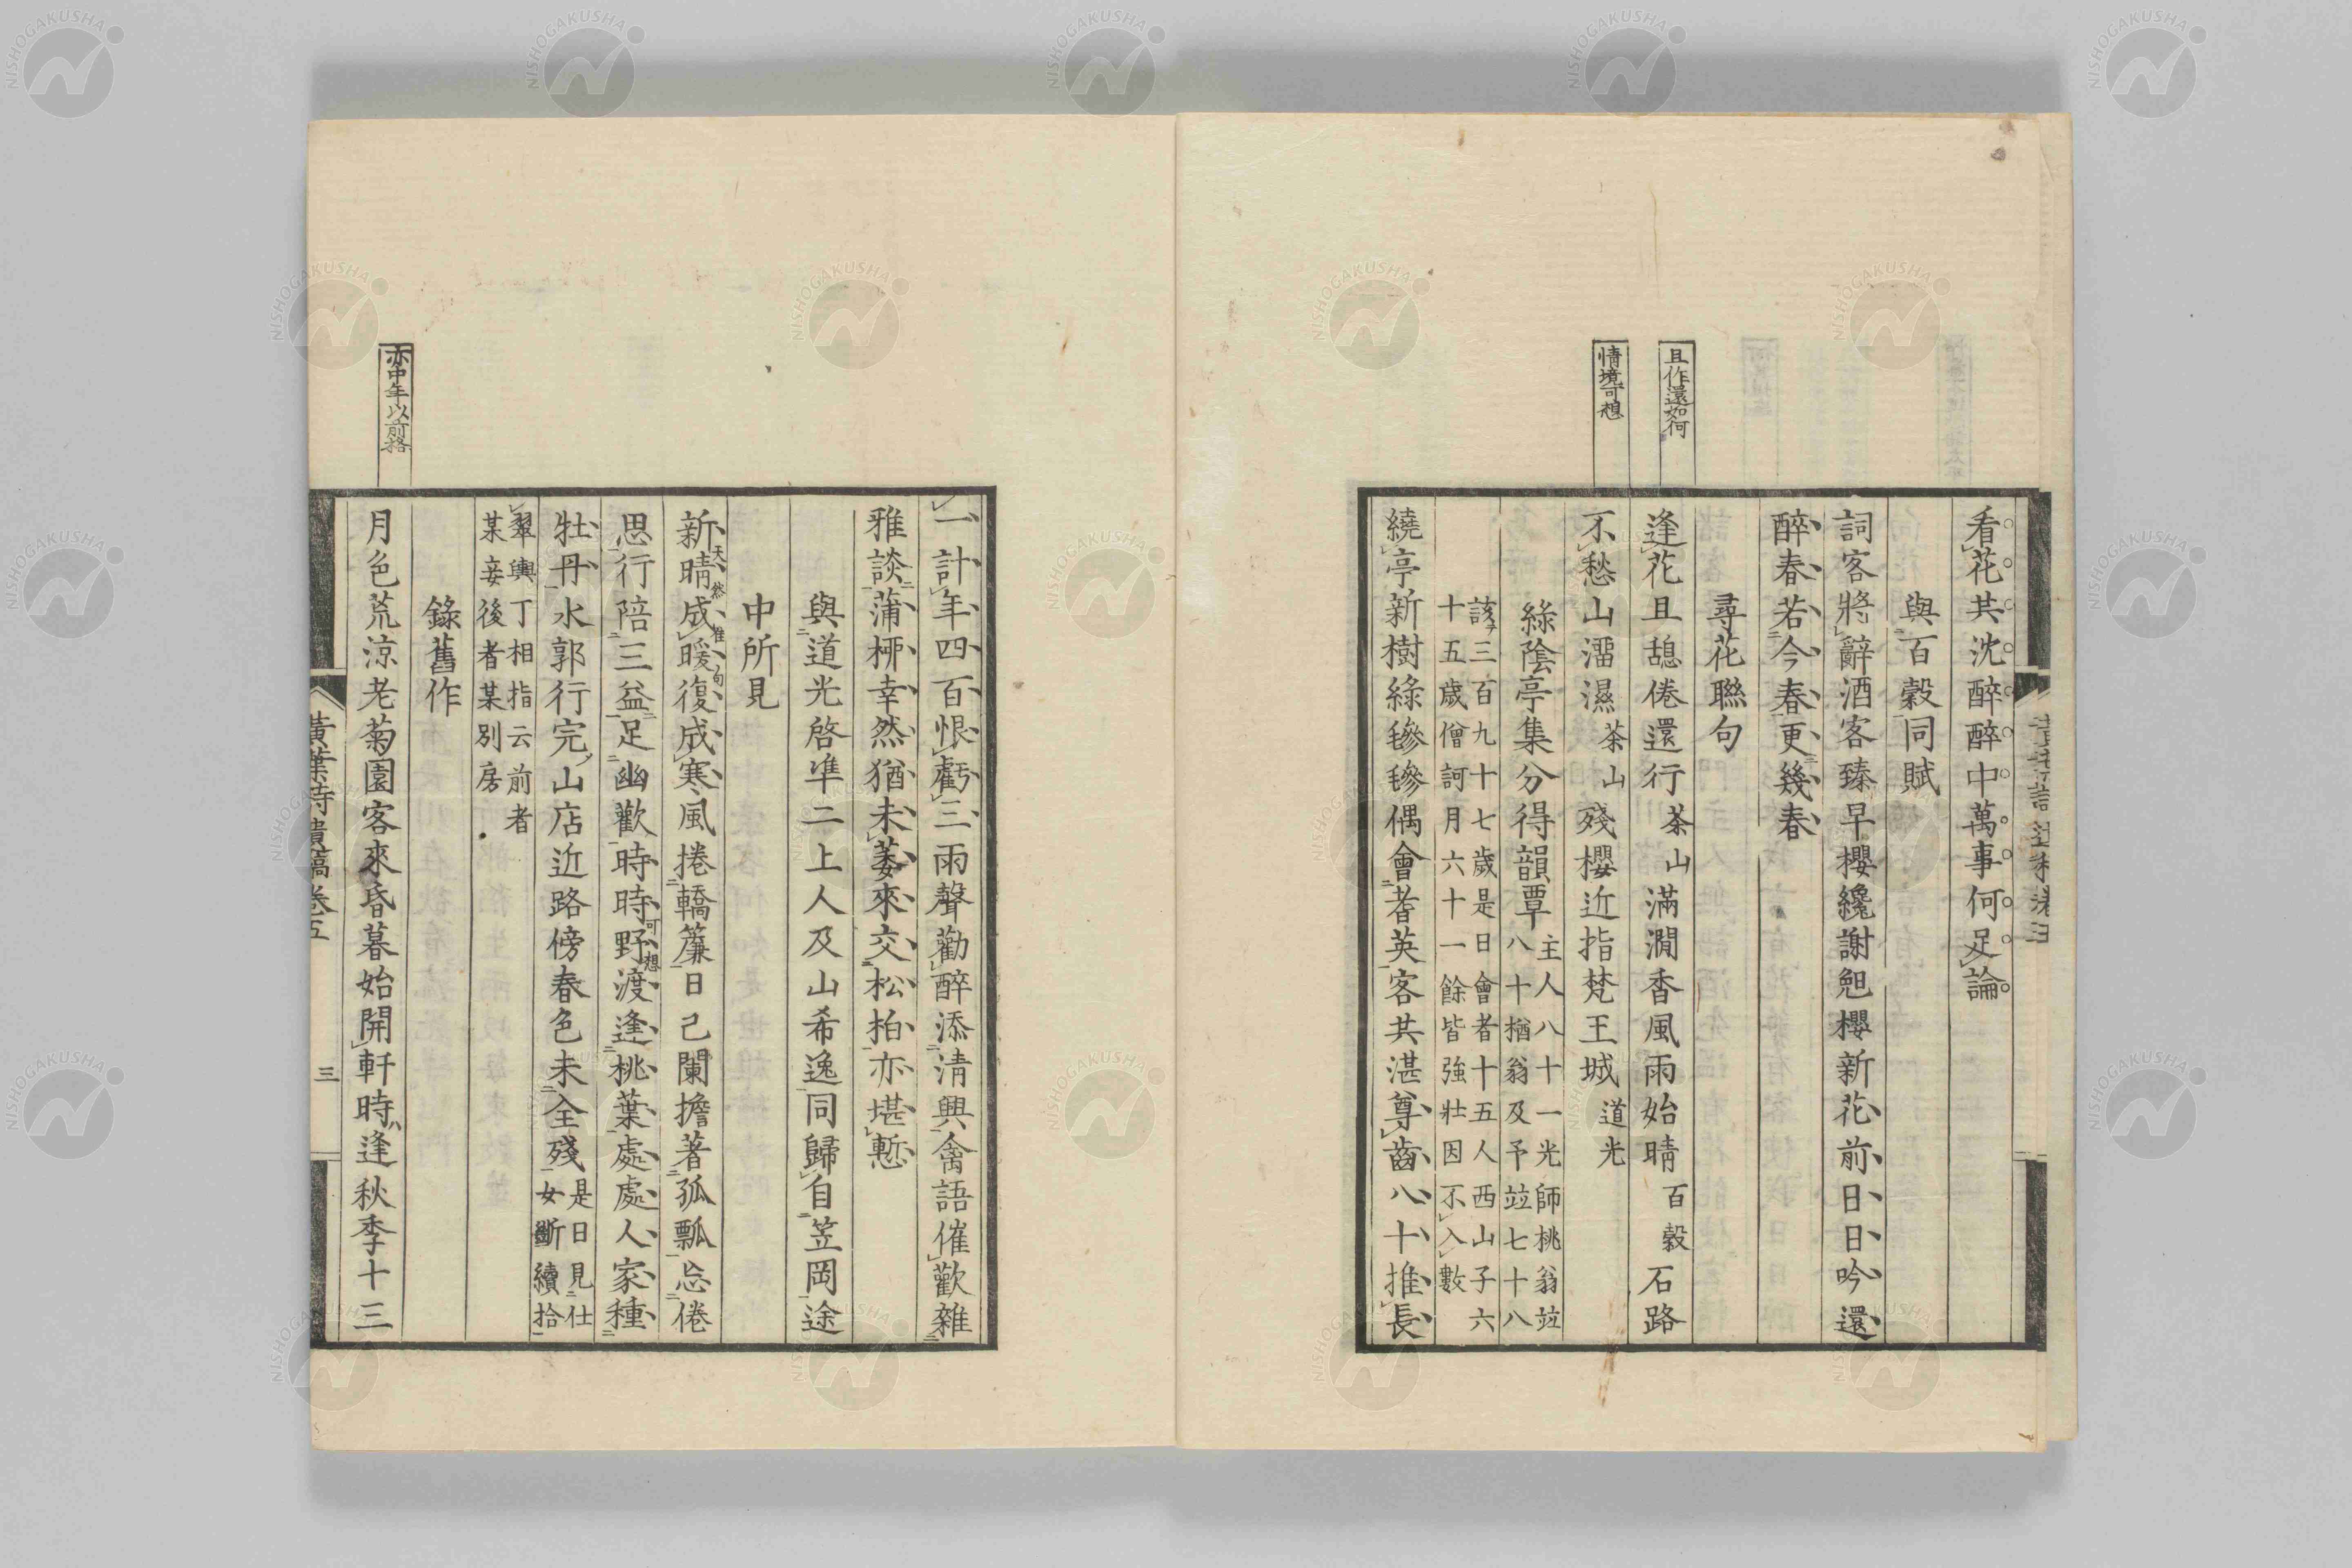 看花共沈醉醉中萬事何足論
與百穀同賦
詞客將辭酒客臻早櫻纔謝兔櫻新花前日日吟還
醉春若今春更幾春
尋花聯句
且作還如何
逢花且憩倦還行茶山滿澗香風雨始晴百穀石路
情境可想
不愁山溜濕茶山殘櫻近指梵王城道光
綠陰亭集分得韻覃主人八十一光師桃翁竝
八十楢翁及予竝七十八
該三百九十七歲是日會者十五人西山子六
十五歲僧訶月六十一餘皆強壯因不入數
繞亭新樹綠毿毿偶會耆英客共湛尊齒八十推長
一計年四百恨虧三雨聲勸醉添清興禽語催歡雜
雅談蒲柳幸然猶未萎來交松柏亦堪慙
與道光啓準二上人及山希逸同歸自笠岡途
中所見
新晴成暖復成寒風捲轎簾日已闌擔著孤瓢忘倦
天然惟句
思行陪三益足幽歡時時野渡逢桃葉處處人家種
可想
牡丹水郭行完山店近路傍春色未全殘是日見仕
女斷續拾
翠輿丁相指云前者
某妾後者某別房
錄舊作
亦中年以前格
月色荒涼老菊園客來昏暮始開軒時逢秋季十三
黃葉詩遺稿卷五
三
NISHOGAKUSHA